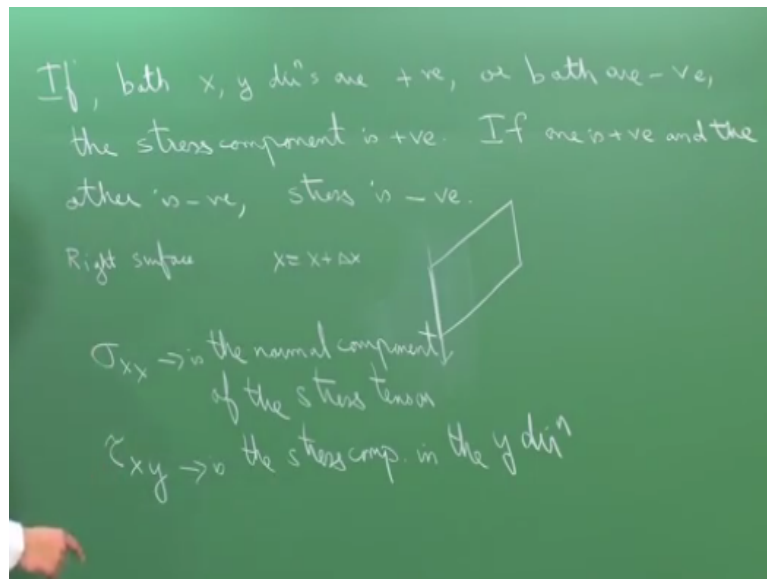 If, both x, y dirⁿs are +ve, or both are -ve,
the stress component is +ve. If one is +ve and the
other is -ve, stress is -ve.
Right surface x = x + Δx
σxx → is the normal component
of the stress tensor
τxy → is the stress comp. in the y dirⁿ